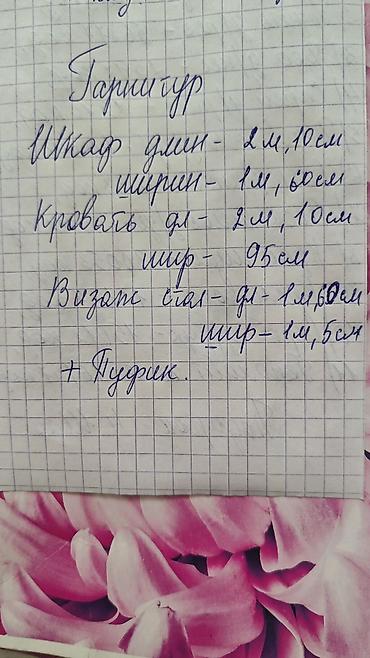 Гарнитур
Шкаф длин - 2 м, 10 см
ширин - 1 м, 60 см
Кровать дл - 2 м, 10 см
шир - 95 см
Визаж стал - дл - 1 м, 60 см
шир - 1 м, 5 см
+ Пуфик.